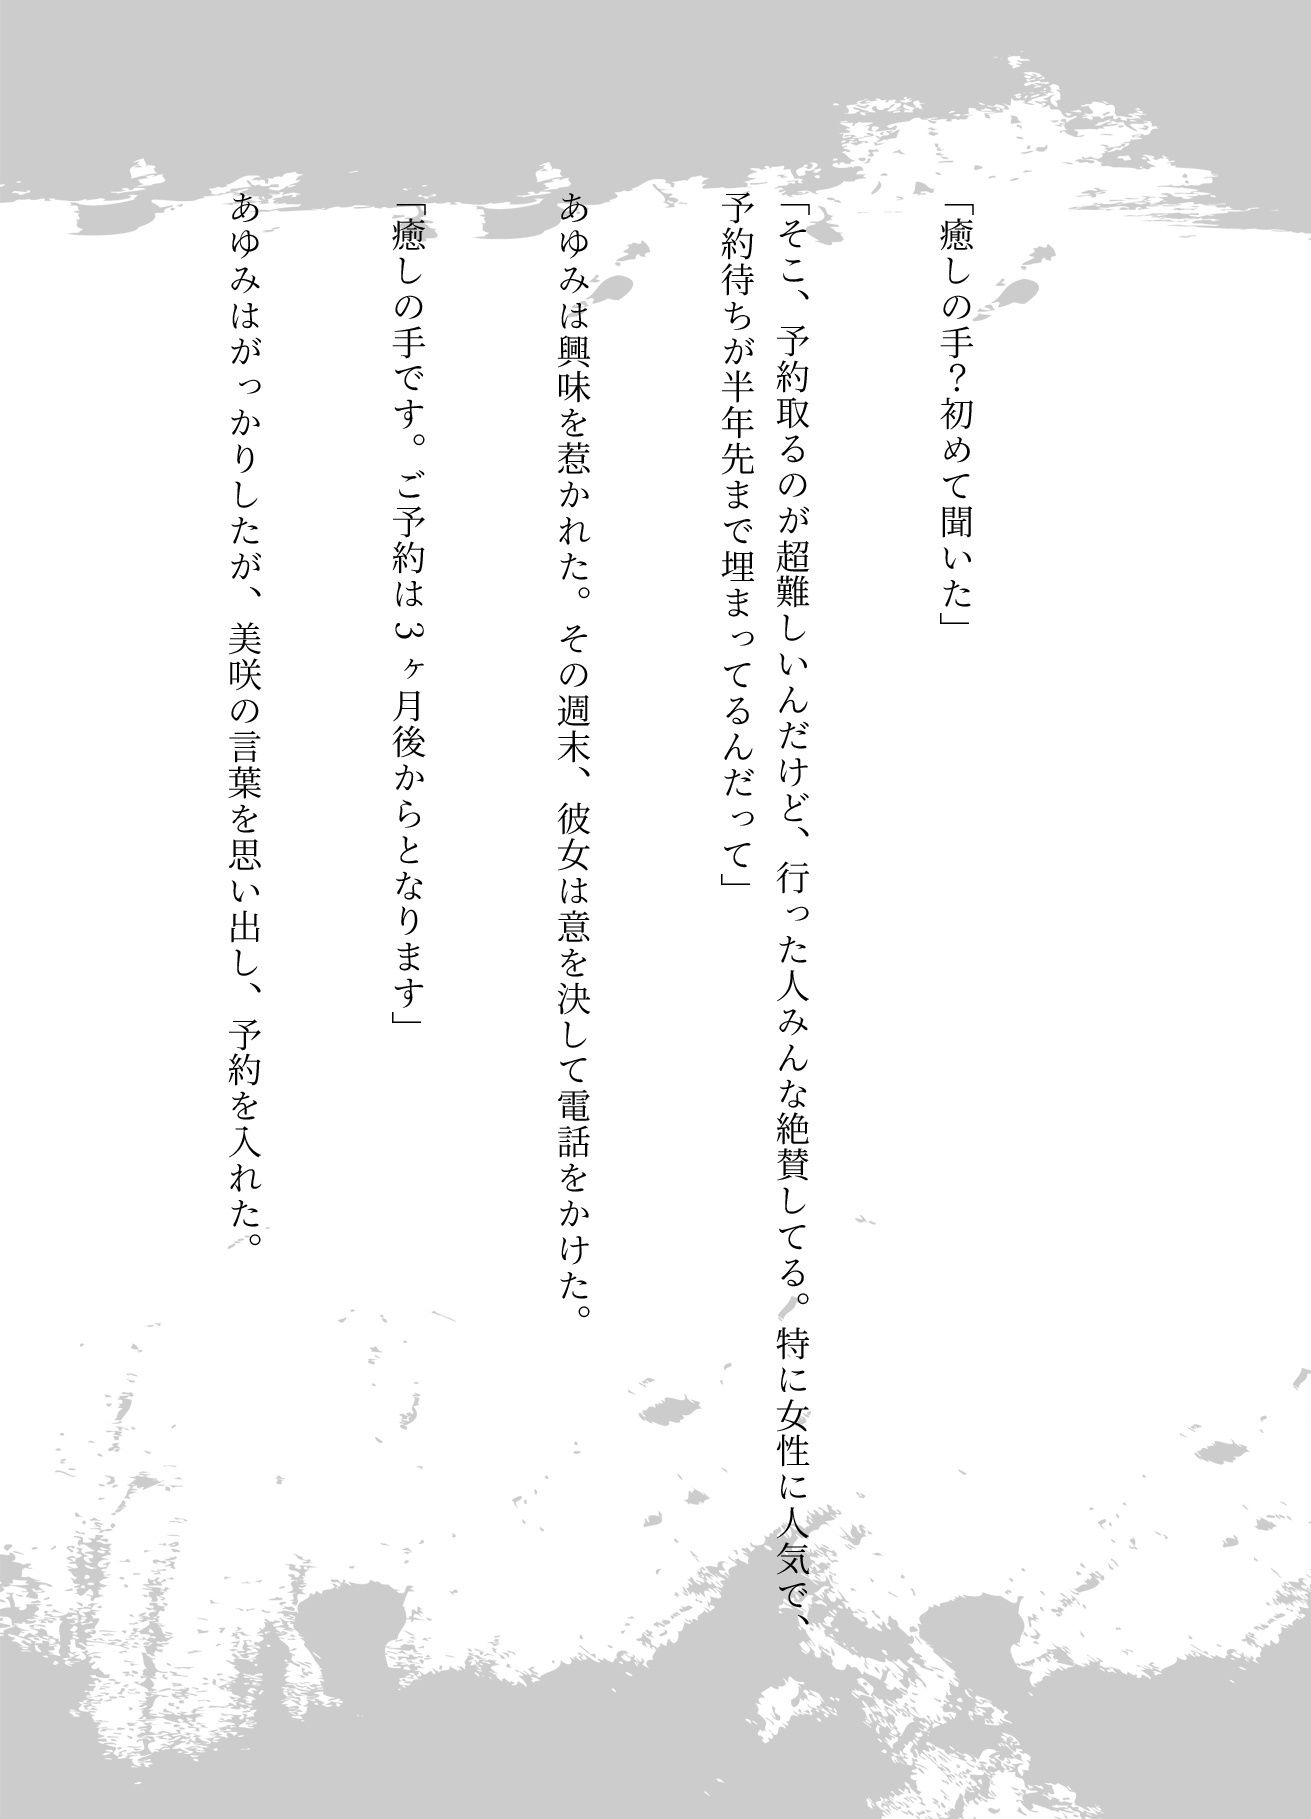 「癒しの手？初めて聞いた」
「そこ、予約取るのが超難しいんだけど、行った人みんな絶賛してる。特に女性に人気で、
予約待ちが半年先まで埋まってるんだって」
あゆみは興味を惹かれた。その週末、彼女は意を決して電話をかけた。
「癒しの手です。ご予約は3ヶ月後からとなります」
あゆみはがっかりしたが、美咲の言葉を思い出し、予約を入れた。